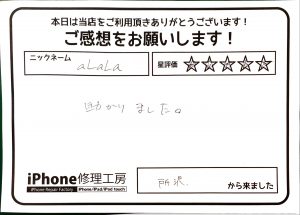 本日は当店をご利用頂きありがとうございます！
ご感想をお願いします！
ニックネーム
aLaLa
星評価 ☆☆☆☆☆
助かりました。
iPhone修理工房
iPhone Repair Factory iPhone/iPad/iPod touch
所沢 から来ました